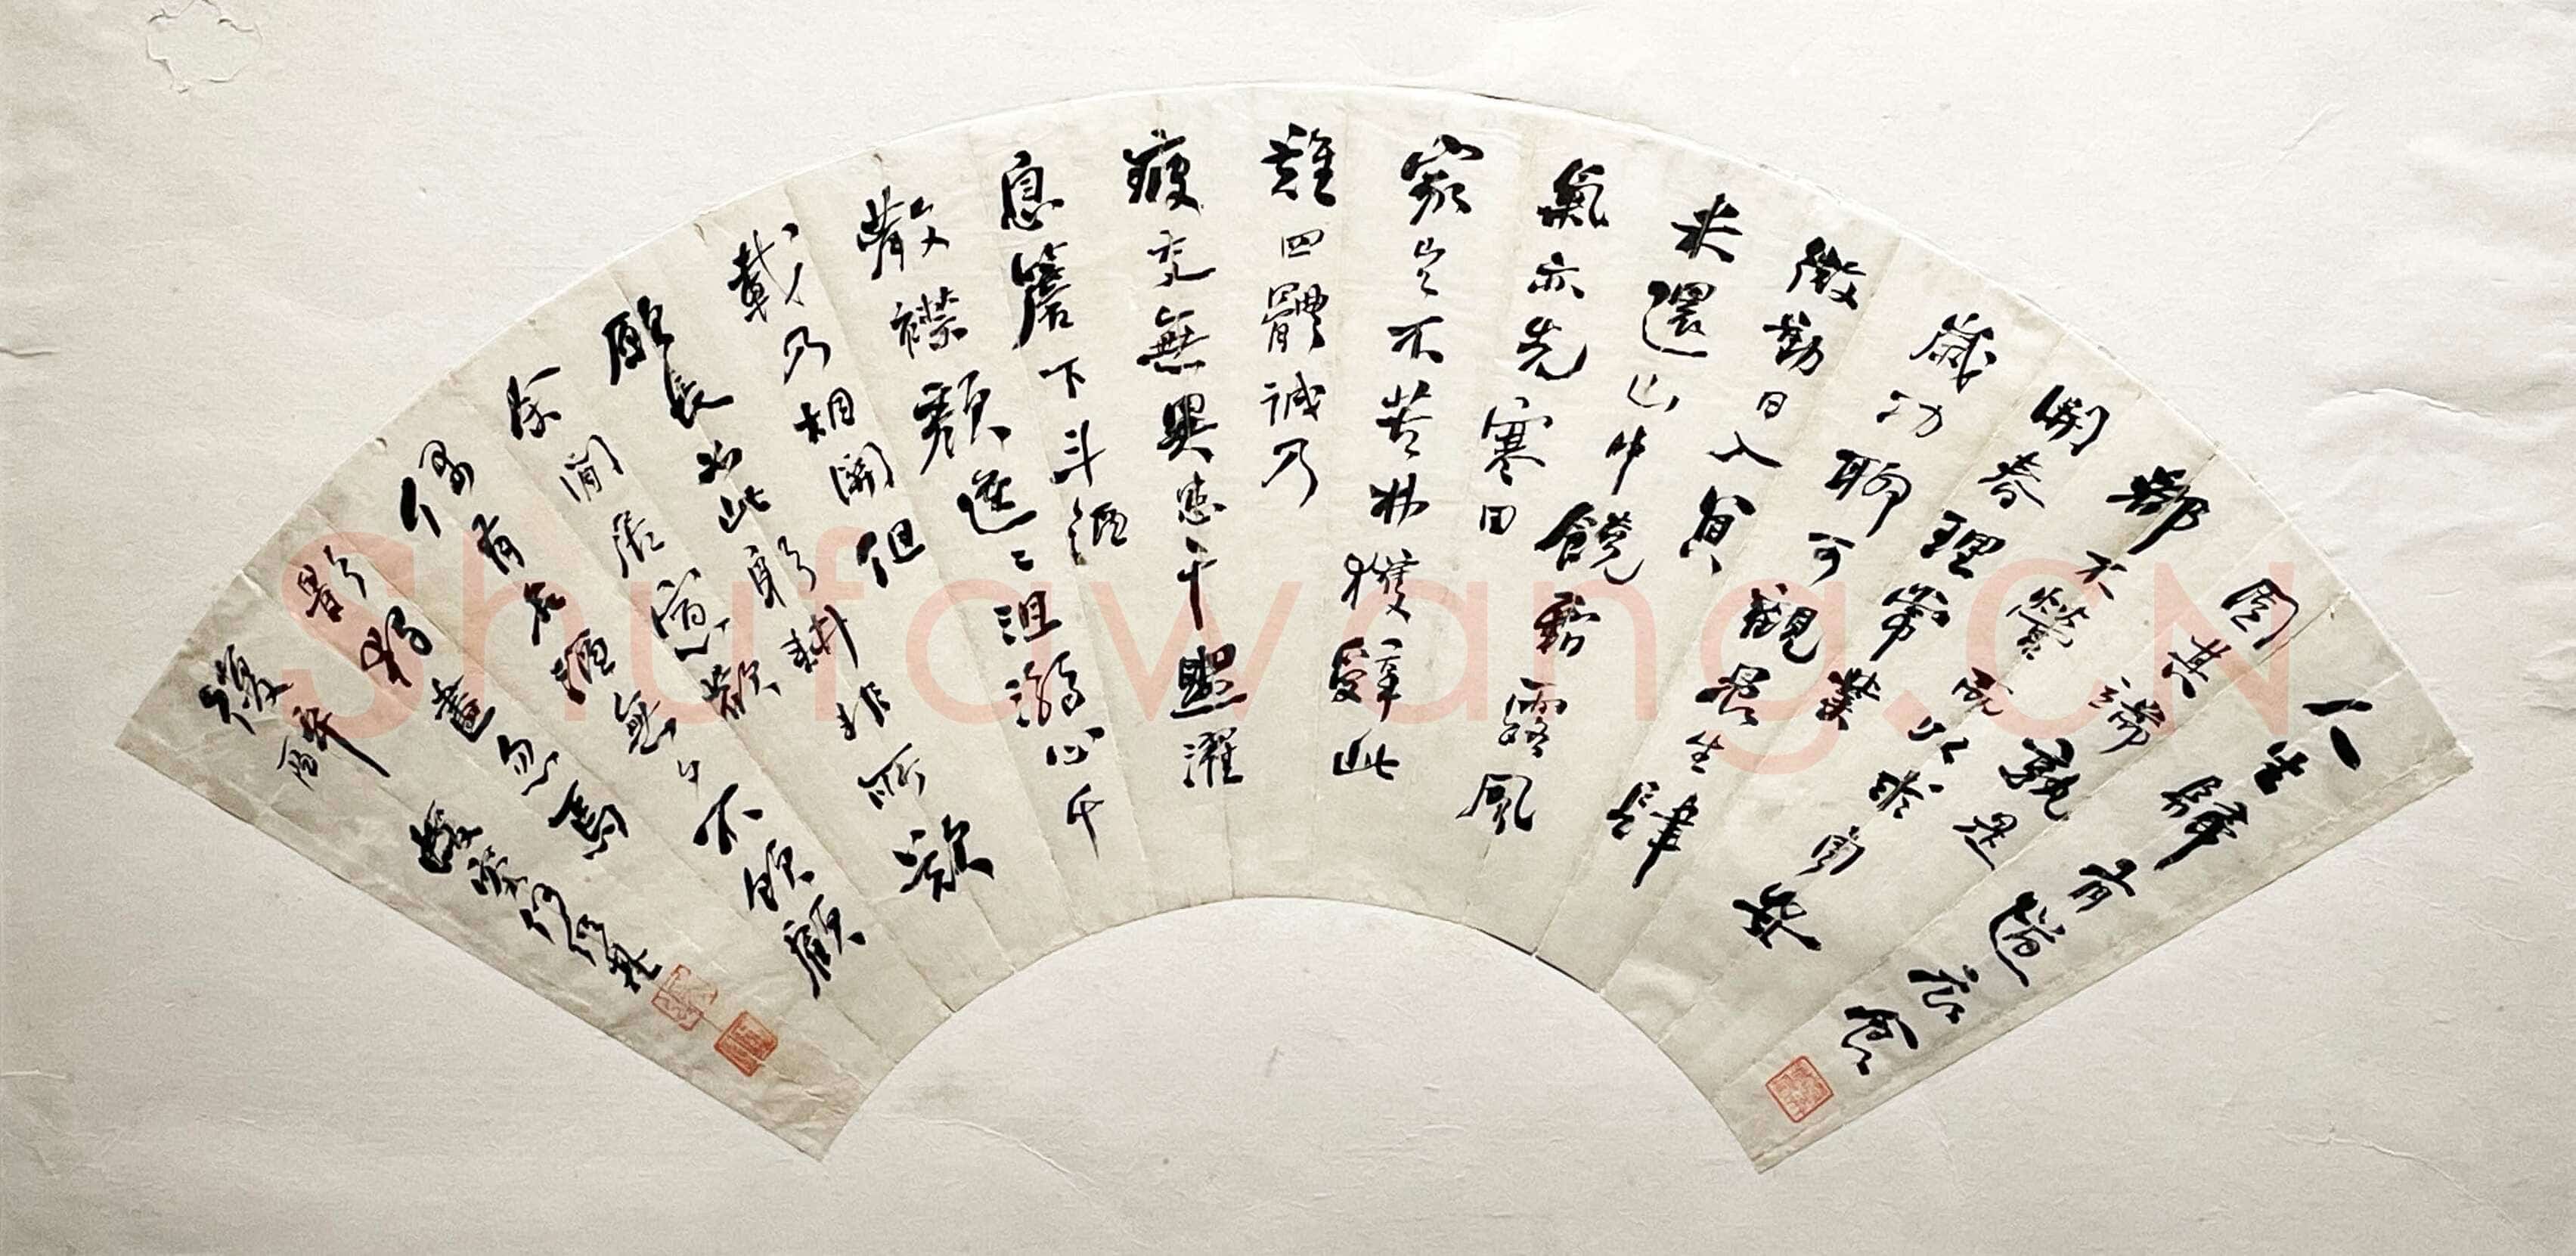 人生歸有道衣食
固其端孰是
都不營而以求自安
開春理常業
歲功聊可觀晨出肆
微勤日入負
耒還山中饒霜露風
氣亦先寒田
家豈不苦弗獲辭此
難四體誠乃
疲庶無異患干盥濯
息簷下斗酒
散襟顏遙〻沮溺心千
載乃相關但
願長如此躬耕非所歎
余閒居寡歡
偶有名酒無夕不飲顧
影獨盡忽焉
復醉 何維樸
shufawang.CN